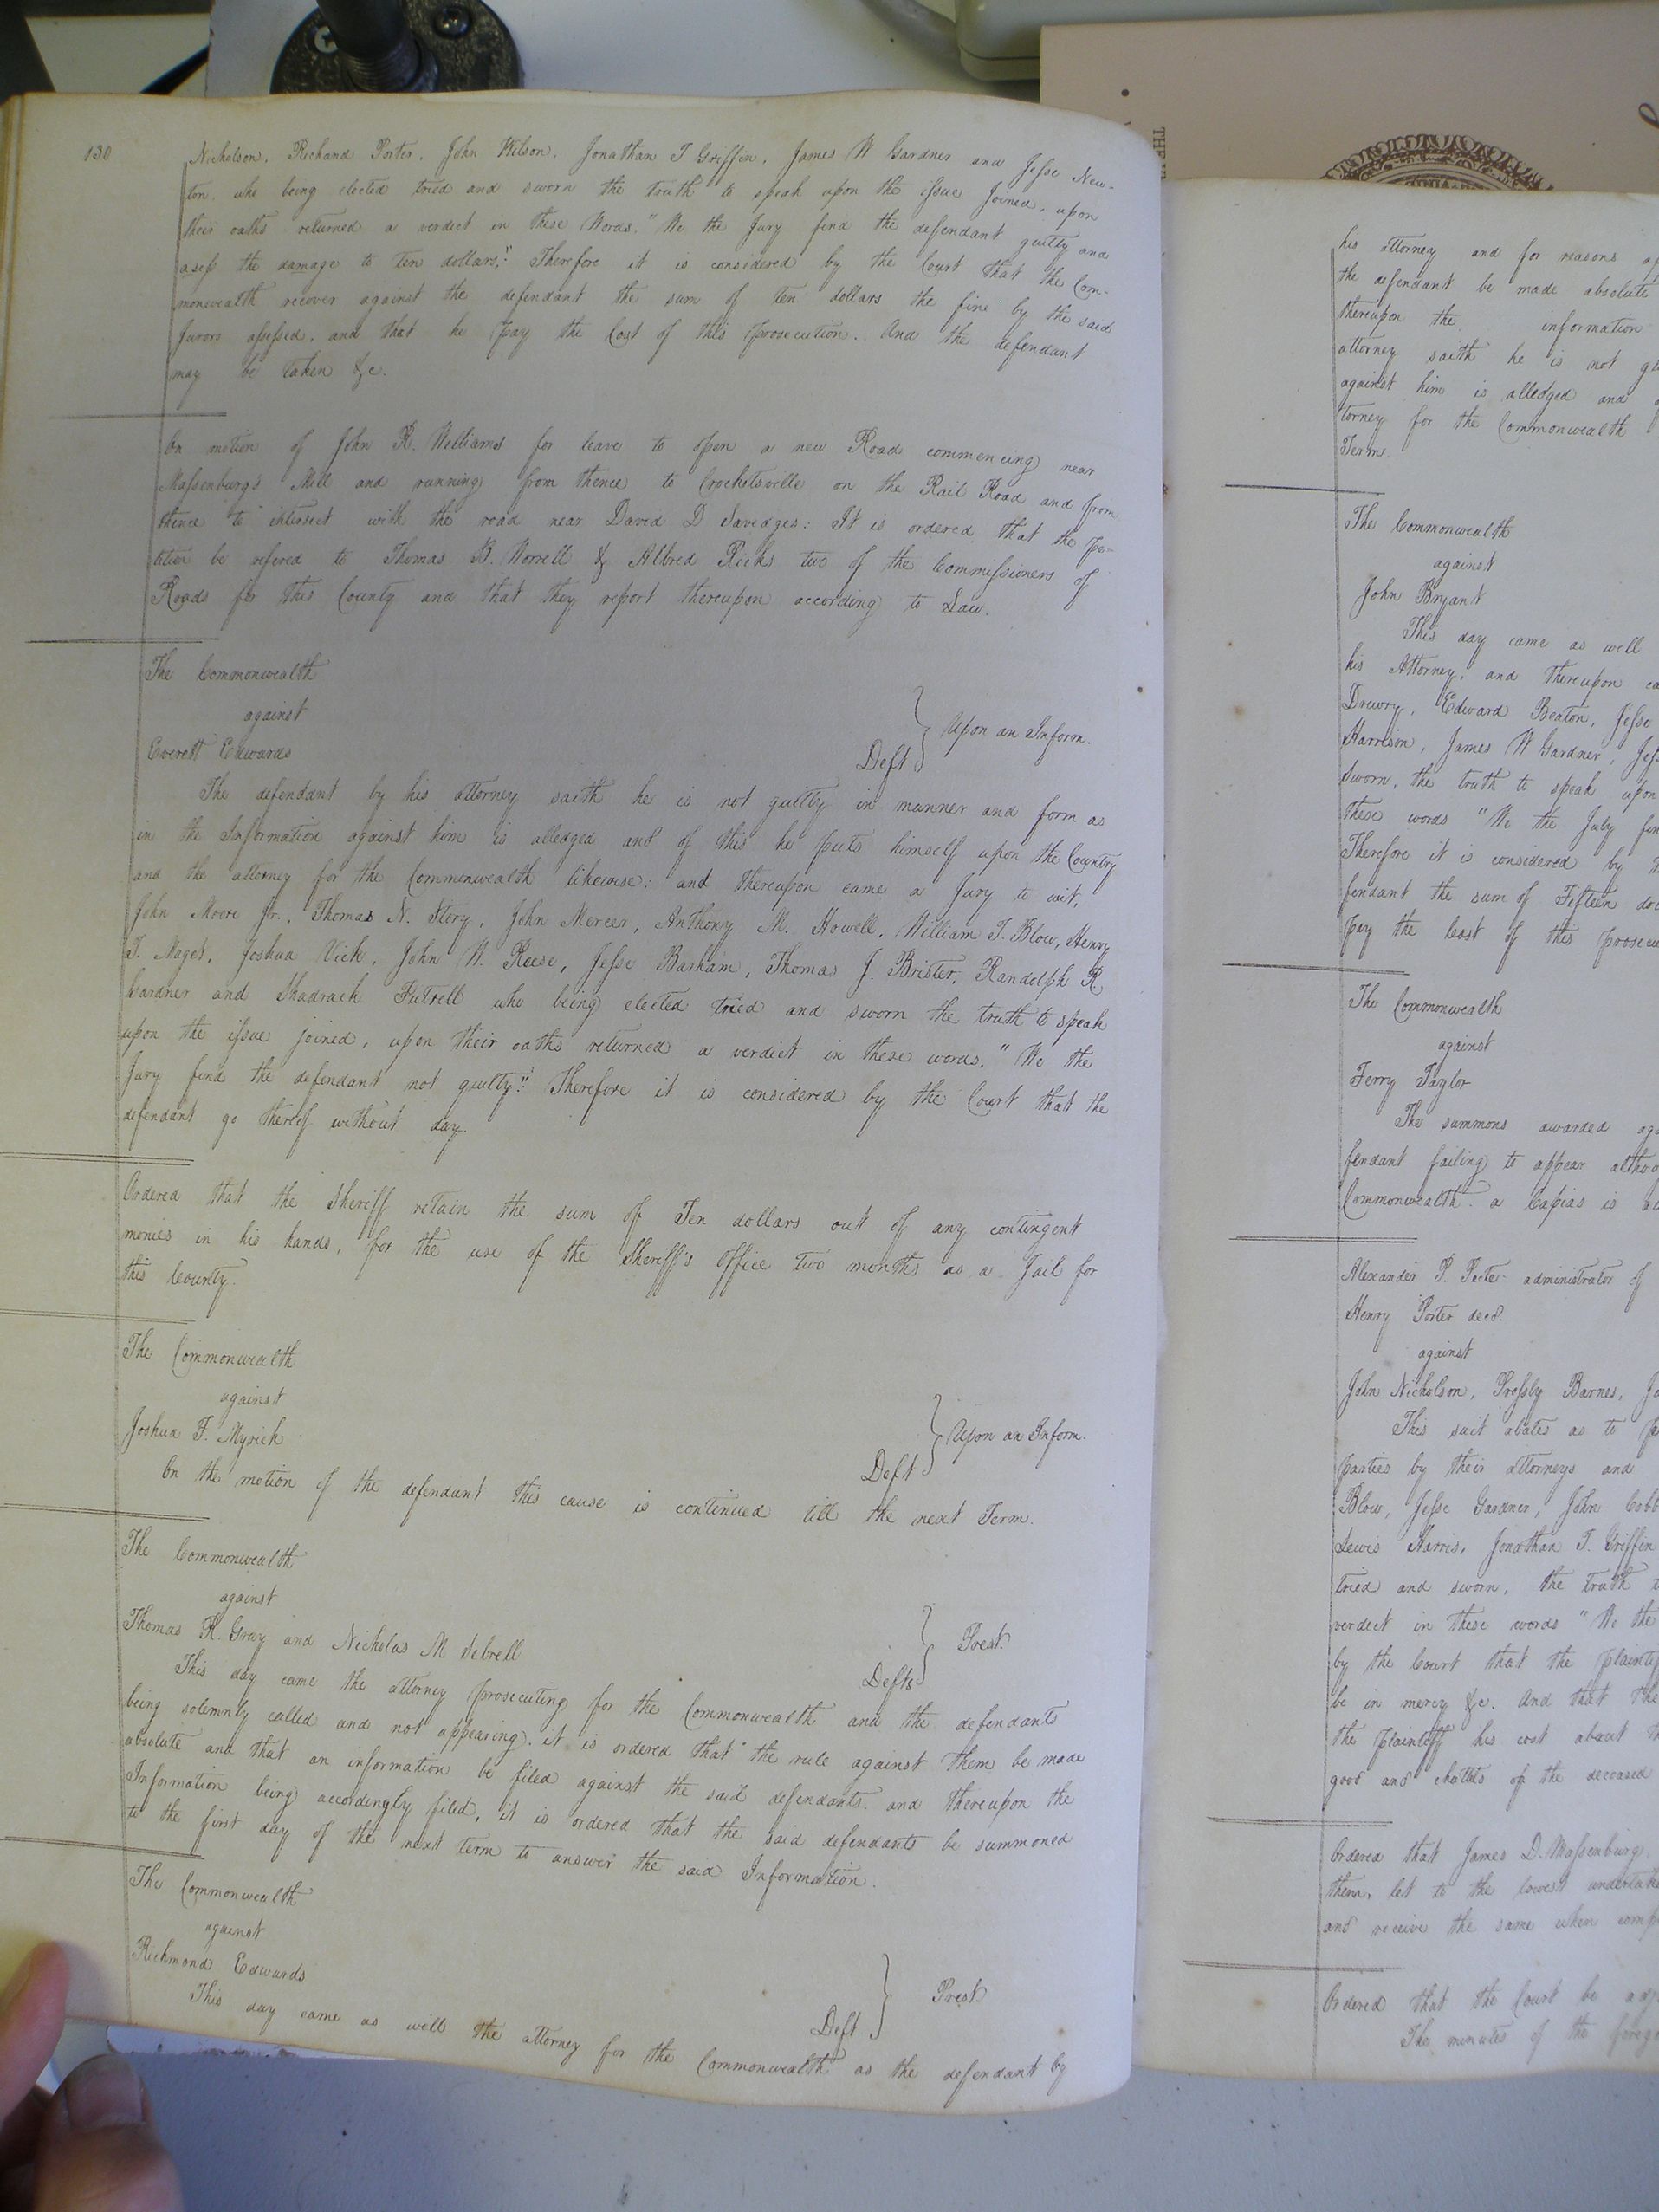 130
Nicholson, Richard Porter, John Wilson, Jonathan T Griffin, James W Gardner and Jesse New-
ton, who being elected tried and sworn the truth to speak upon the issue Joined, upon
their oaths returned a verdict in these Words. "We the Jury find the defendant guilty and
asess the damage to ten dollars," Therefore it is considered by the Court that the Com-
monwealth recover against the defendant the sum of ten dollars the fine by the said
Jurors assessed, and that he pay the Cost of this prosecution. And the defendant
may be taken &c.
On motion of John R. Williams for leave to open a new Road commencing near
Massenburg's Mill and running from thence to Crocketsville on the Rail Road and from
thence to intersect with the road near David D Savedges: It is ordered that the pe-
tition be refered to Thomas B. Worrell & Albred Ricks two of the Commissioners of
Roads for this County and that they report thereupon according to Law.
The Commonwealth
against
Everett Edwards Deft } Upon an Inform.
The defendant by his attorney saith he is not guilty in manner and form as
in the Information against him is alledged and of this he puts himself upon the Country
and the attorney for the Commonwealth likewise: and thereupon came a Jury to wit,
John Moore Jr., Thomas N. Story, John Mercer, Anthony M. Howell, William T. Blow, Henry
T. Maget, Joshua Vick, John W. Reese, Jesse Barham, Thomas J. Brister, Randolph R
Gardner and Shadrach Futrell who being elected tried and sworn the truth to speak
upon the issue joined, upon their oaths returned a verdict in these words, "We the
Jury find the defendant not guilty." Therefore it is considered by the Court that the
defendant go thereof without day.
Ordered that the Sheriff retain the sum of Ten dollars out of any contingent
monies in his hands, for the use of the Sheriff's Office two months as a Jail for
this County.
The Commonwealth
against
Joshua F. Myrick Deft } Upon an Inform.
On the motion of the defendant this cause is continued till the next Term.
The Commonwealth
against
Thomas R. Gray and Nicholas M Sebrell Defts } Prest.
This day came the attorney prosecuting for the Commonwealth and the defendants
being solemnly called and not appearing, it is ordered that the rule against them be made
absolute and that an information be filed against the said defendants. and thereupon the
Information being accordingly filed, it is ordered that the said defendants be summoned
to the first day of the next term to answer the said Information.
The Commonwealth
against
Richmond Edwards Deft } Prest
This day came as well the attorney for the Commonwealth as the defendant by
his attorney and for reasons
the defendant be made absolute
thereupon the information
attorney saith he is not
against him is alledged and
torney for the Commonwealth
Term.
The Commonwealth
against
John Bryant
This day came as well
his Attorney, and thereupon
Drewry, Edward Beaton, Jesse
Harrison, James W Gardner,
Sworn, the truth to speak upon
these words "We the July
Therefore it is considered by
fendant the sum of Fifteen
pay the Cost of this
The Commonwealth
against
Ferry Taylor
The summons awarded
fendant failing to appear
Commonwealth. a Capias is
Alexander P. Peete administrator of
Henry Porter decd.
against
John Nicholson, Pressly Barnes,
This suit abates as to
parties by their attorneys and
Blow, Jesse Gardner, John
Lewis Harris, Jonathan T. Griffin
tried and sworn, the truth
verdict in these words "We the
by the Court that the
be in mercy &c. And that the
the plaintiff his cost about
good and chattels of the deceased
Ordered that James D. Massenburg,
them, let to the lowest
and receive the same when
Ordered that the Court be
The minutes of the